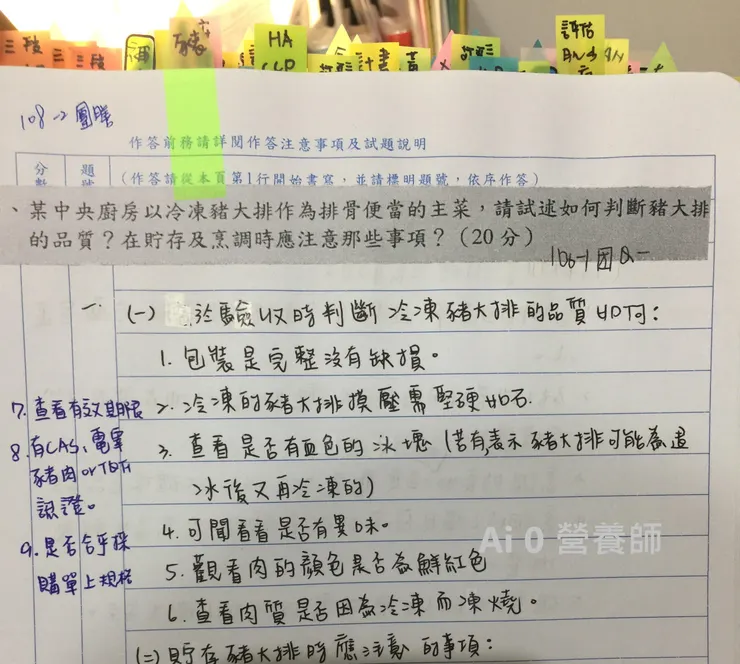 三段
三段
豬
HA
CCP
計畫
評估
108-2 團膳
作答前務請詳閱作答注意事項及試題說明
分數
題號
(作答請從本頁第1行開始書寫,並請標明題號,依序作答)
、某中央廚房以冷凍豬大排作為排骨便當的主菜,請試述如何判斷豬大排
的品質?在貯存及烹調時應注意那些事項?(20分)
106-1 团Q一
一
(一) 於驗收時判斷冷凍豬大排的品質如何:
1. 包裝是完整沒有缺損。
2. 冷凍的豬大排摸壓需堅硬如石.
3. 查看是否有血色的冰塊 (若有,表示豬大排可能為退
冰後又再冷凍的)
4. 可聞看看是否有異味。
5. 觀看肉的顏色是否為鮮紅色
6. 查看肉質是否因為冷凍而凍燒。
7. 查看有效期限
8. 有CAS、電宰
豬肉or TQF
認證。
9. 是否合乎採
購單上規格
Ai 0 營養師
(二) 貯存豬大排時應注意的事項: